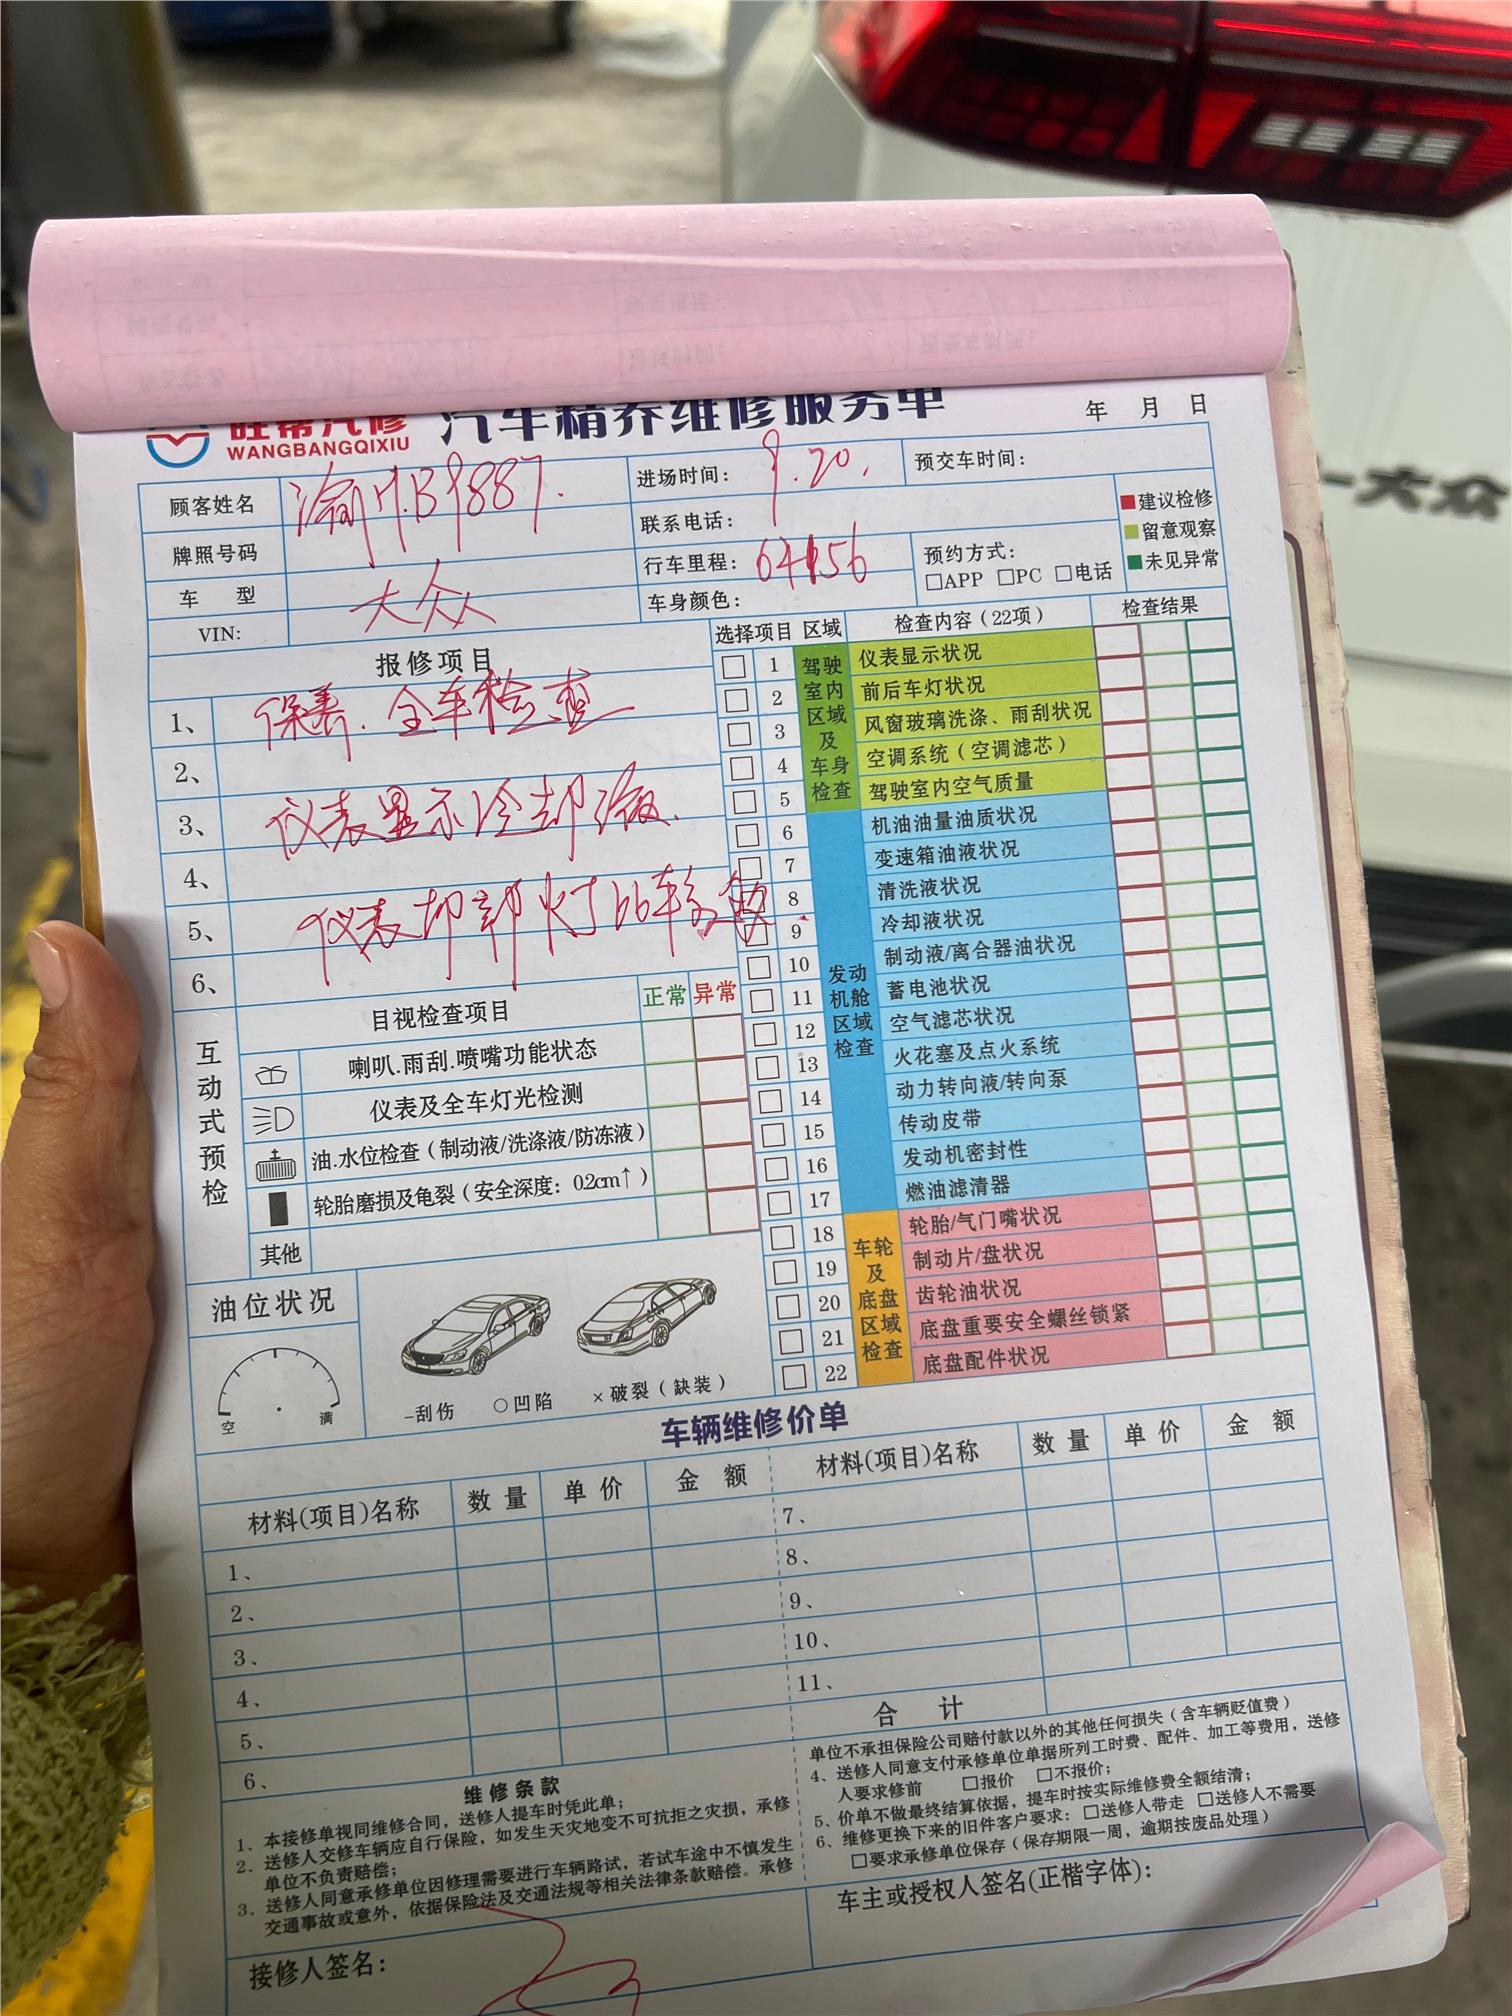 旺帮汽修
WANGBANGQIXIU
汽车精养维修服务单
年 月 日
顾客姓名
牌照号码
渝 B9887.
进场时间: 9.20.
预交车时间:
联系电话:
行车里程: 64156
预约方式:
□APP □PC □电话
车身颜色:
建议检修
留意观察
未见异常
车 型 大众
VIN:
报修项目
1、 保养.全车检查
2、
3、 仪表显示冷却液.
4、
5、 仪表
6、
互动式预检
目视检查项目 正常 异常
喇叭.雨刮.喷嘴功能状态
仪表及全车灯光检测
油.水位检查(制动液/洗涤液/防冻液)
轮胎磨损及龟裂(安全深度: 0.2cm↑)
其他
油位状况
空 满
–刮伤 ○凹陷 ×破裂(缺装)
选择项目 区域 检查内容(22项) 检查结果
驾驶室内区域及车身检查
1 仪表显示状况
2 前后车灯状况
3 风窗玻璃洗涤、雨刮状况
4 空调系统(空调滤芯)
5 驾驶室内空气质量
发动机舱区域检查
6 机油油量油质状况
7 变速箱油液状况
8 清洗液状况
9 冷却液状况
10 制动液/离合器油状况
11 蓄电池状况
12 空气滤芯状况
13 火花塞及点火系统
14 动力转向液/转向泵
15 传动皮带
16 发动机密封性
17 燃油滤清器
车轮及底盘区域检查
18 轮胎/气门嘴状况
19 制动片/盘状况
20 齿轮油状况
21 底盘重要安全螺丝锁紧
22 底盘配件状况
车辆维修价单
材料(项目)名称 数量 单价 金 额
1、
2、
3、
4、
5、
6、
材料(项目)名称 数量 单价 金 额
7、
8、
9、
10、
11、
合 计
维修条款
1、本接修单视同维修合同，送修人提车时凭此单；
2、送修人交修车辆应自行保险，如发生天灾地变不可抗拒之灾损，承修
单位不负责赔偿；
3、送修人同意承修单位因修理需要进行车辆路试，若试车途中不慎发生
交通事故或意外，依据保险法及交通法规等相关法律条款赔偿。承修
单位不承担保险公司赔付款以外的其他任何损失(含车辆贬值费)
4、送修人同意支付承修单位单据所列工时费、配件、加工等费用，送修
人要求修前 □报价 □不报价；
5、价单不做最终结算依据，提车时按实际维修费全额结清；
6、维修更换下来的旧件客户要求: □送修人带走 □送修人不需要
□要求承修单位保存(保存期限一周，逾期按废品处理)
接修人签名:
车主或授权人签名(正楷字体):
一大众